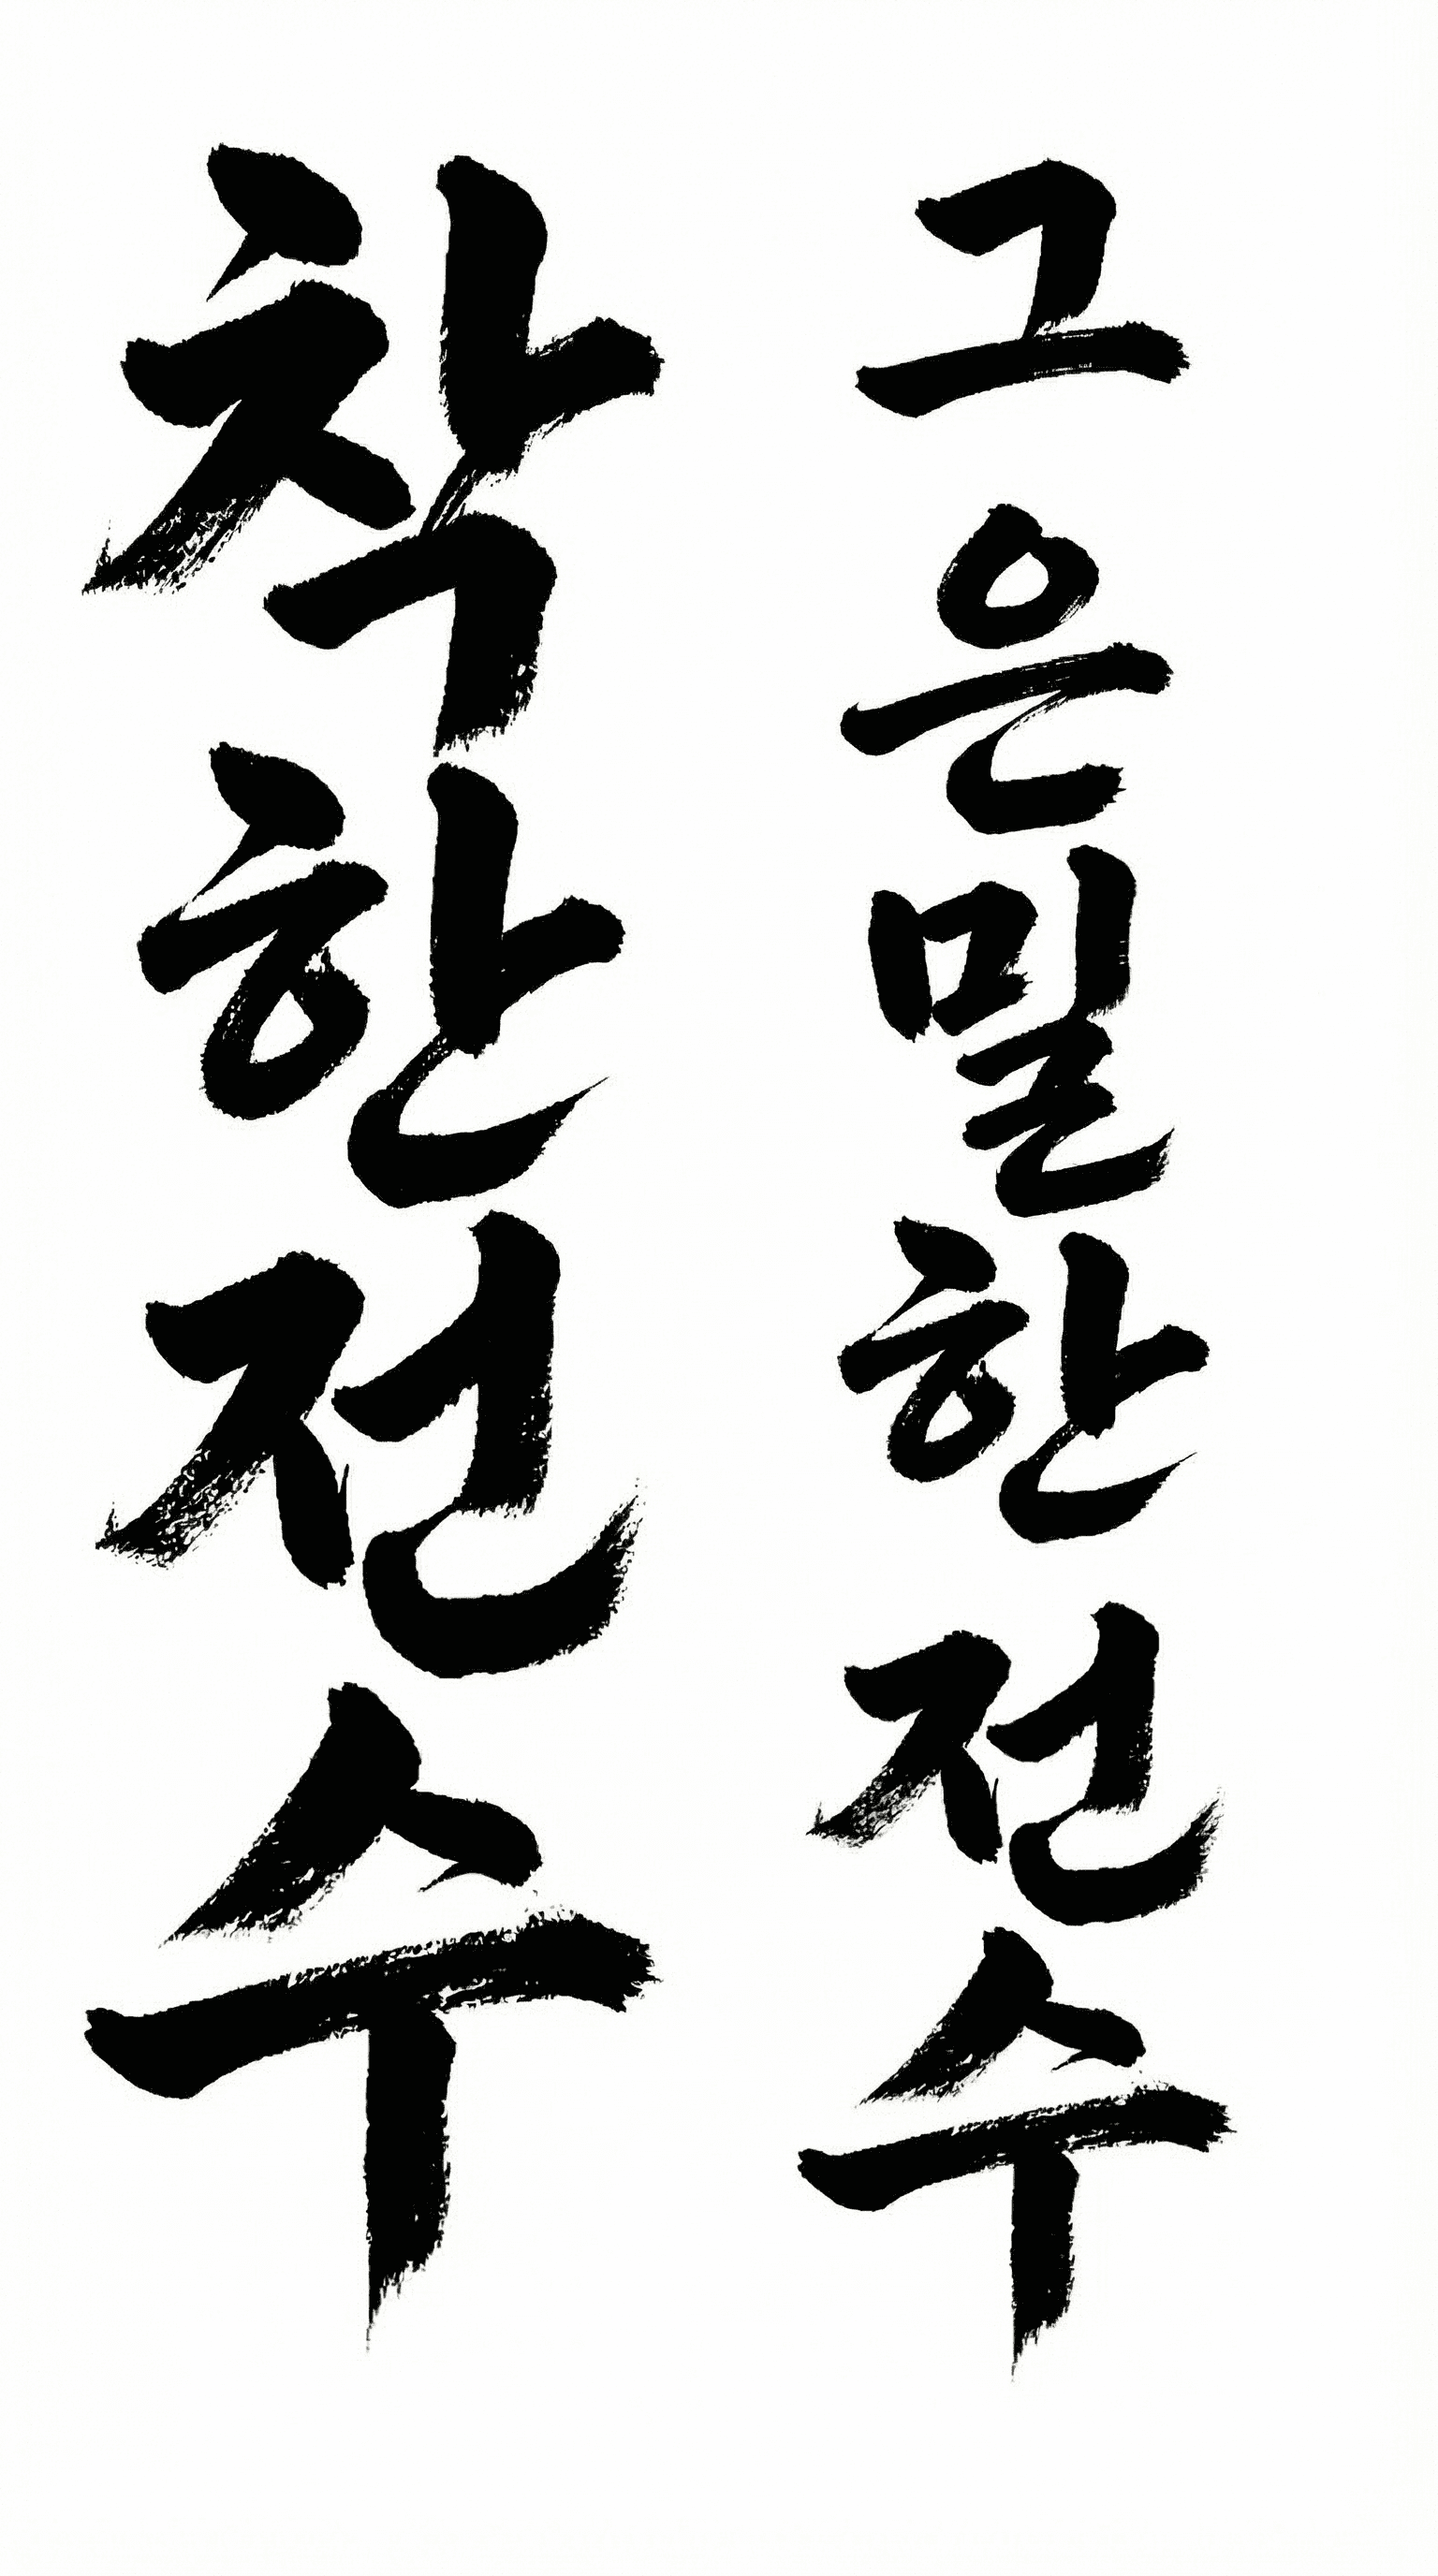 착한전수
그 은밀한 전수